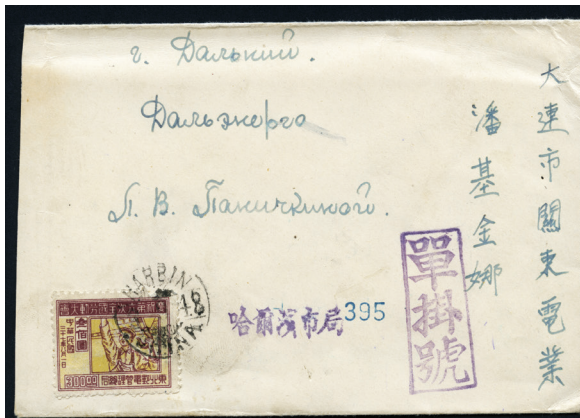 г. Дальний.
Дальэнерго
Л. В. Паничкиной.
大連市關東電業
潘基金娜
單掛號
哈爾濱市局 395
HARBIN
CHINA
300.00